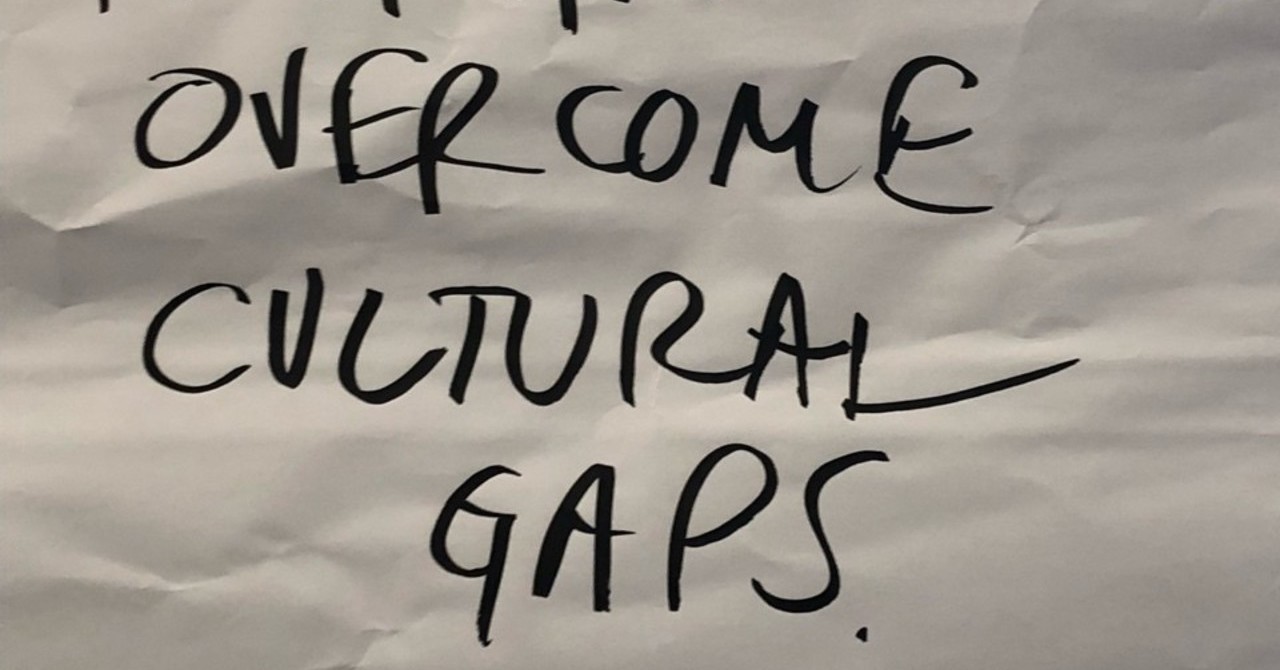 OVERCOME
CULTURAL
GAPS.